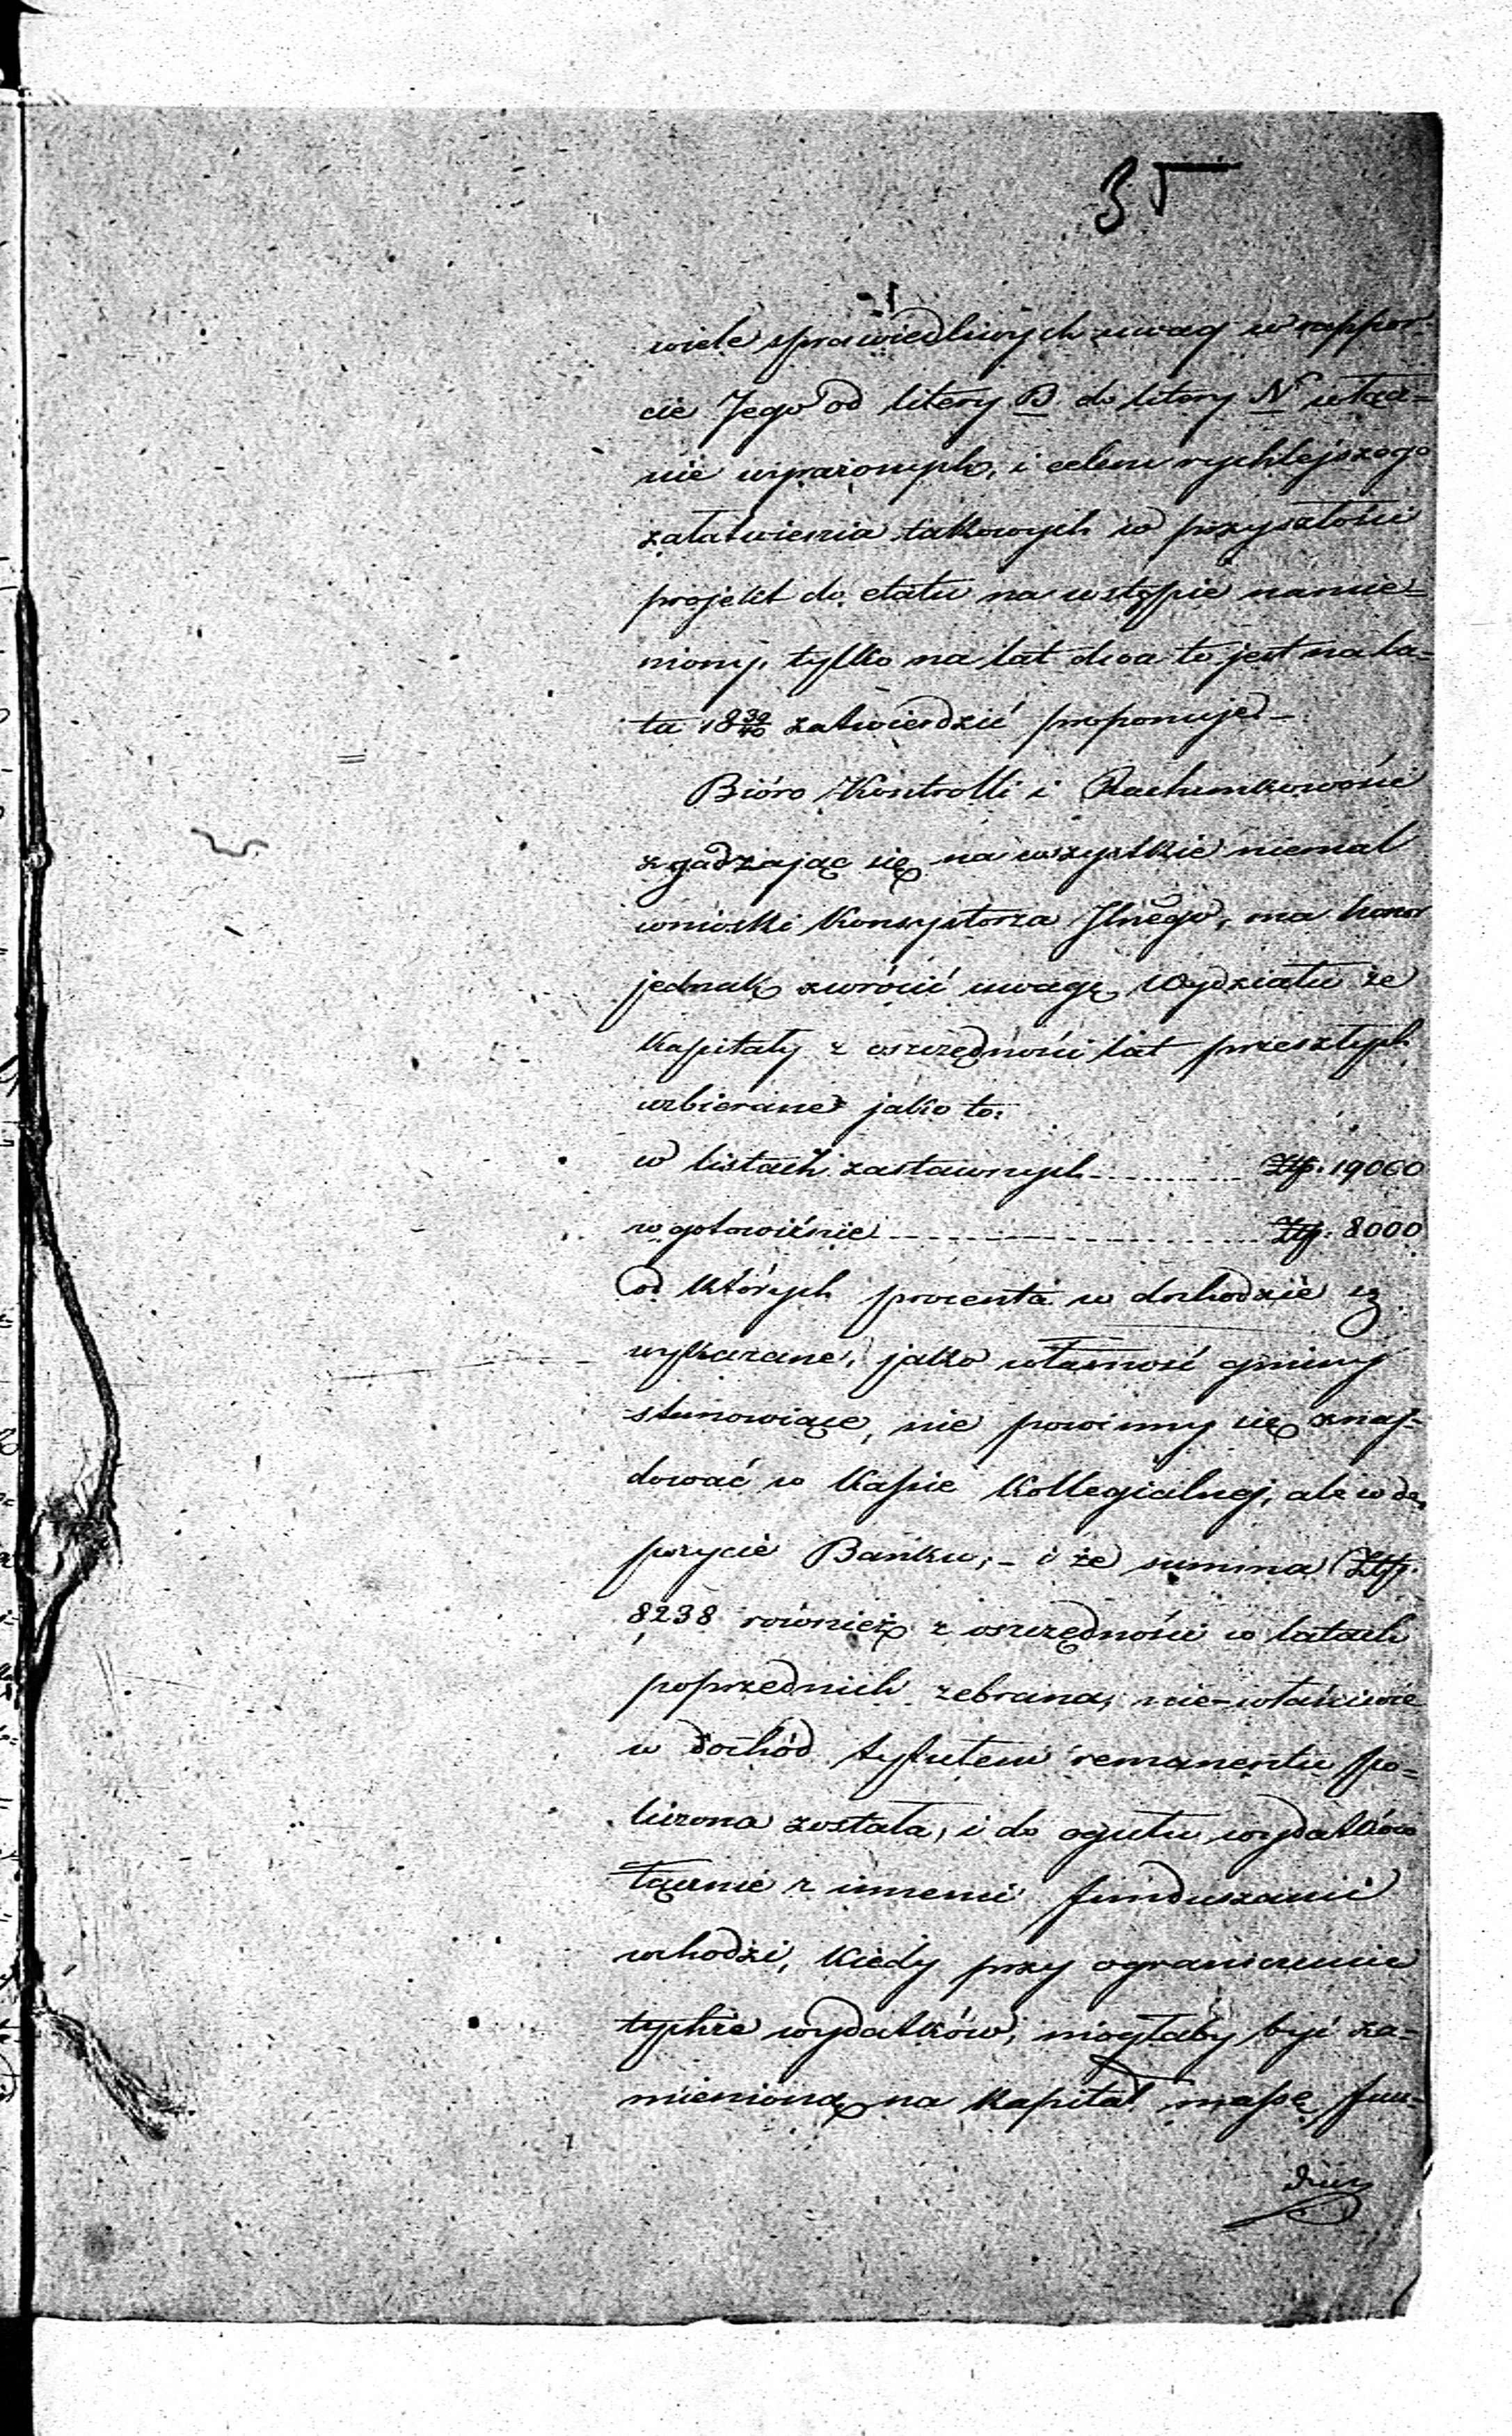 35
wiele sprawiedliwych uwag w rappor-
cie Jego od litery B do litery N włącz-
nie wyrażonych, i celem rychlejszego
załatwienia takowych w przyszłości
projekt do etatu na wstępie namie-
niony, tylko na lat dwa to jest na la-
ta 18 39/40 zatwierdzić proponuje -
Bióro Kontrolli i Rachunkowości
zgadzając się na wszystkie niemal
wnioski Konsystorza Jlnego, ma honor
jednak zwrócić uwagę Wydziału że
Kapitały z oszczędności lat przeszłych
uzbierane jako to:
w listach zastawnych Złp. 19000
w gotowiźnie Złp. 8000
od których procenta w dochodzie są
wykazane, jako własność gminy
stanowiące, nie powinny się znaj-
dować w Kassie Kollegialnej, ale w de-
pozycie Banku; - i że summa Złp.
8238 rownież z oszczędności w latach
poprzednich zebrana, nie-właściwie
w dochód tytułem remanentu po-
liczona została, i do ogułu wydatków
łącznie z innemi funduszami
wchodzi, Kiedy przy ograniczeniu
tychże wydatków, mogłaby być za-
mienioną na Kapitał massę fun-